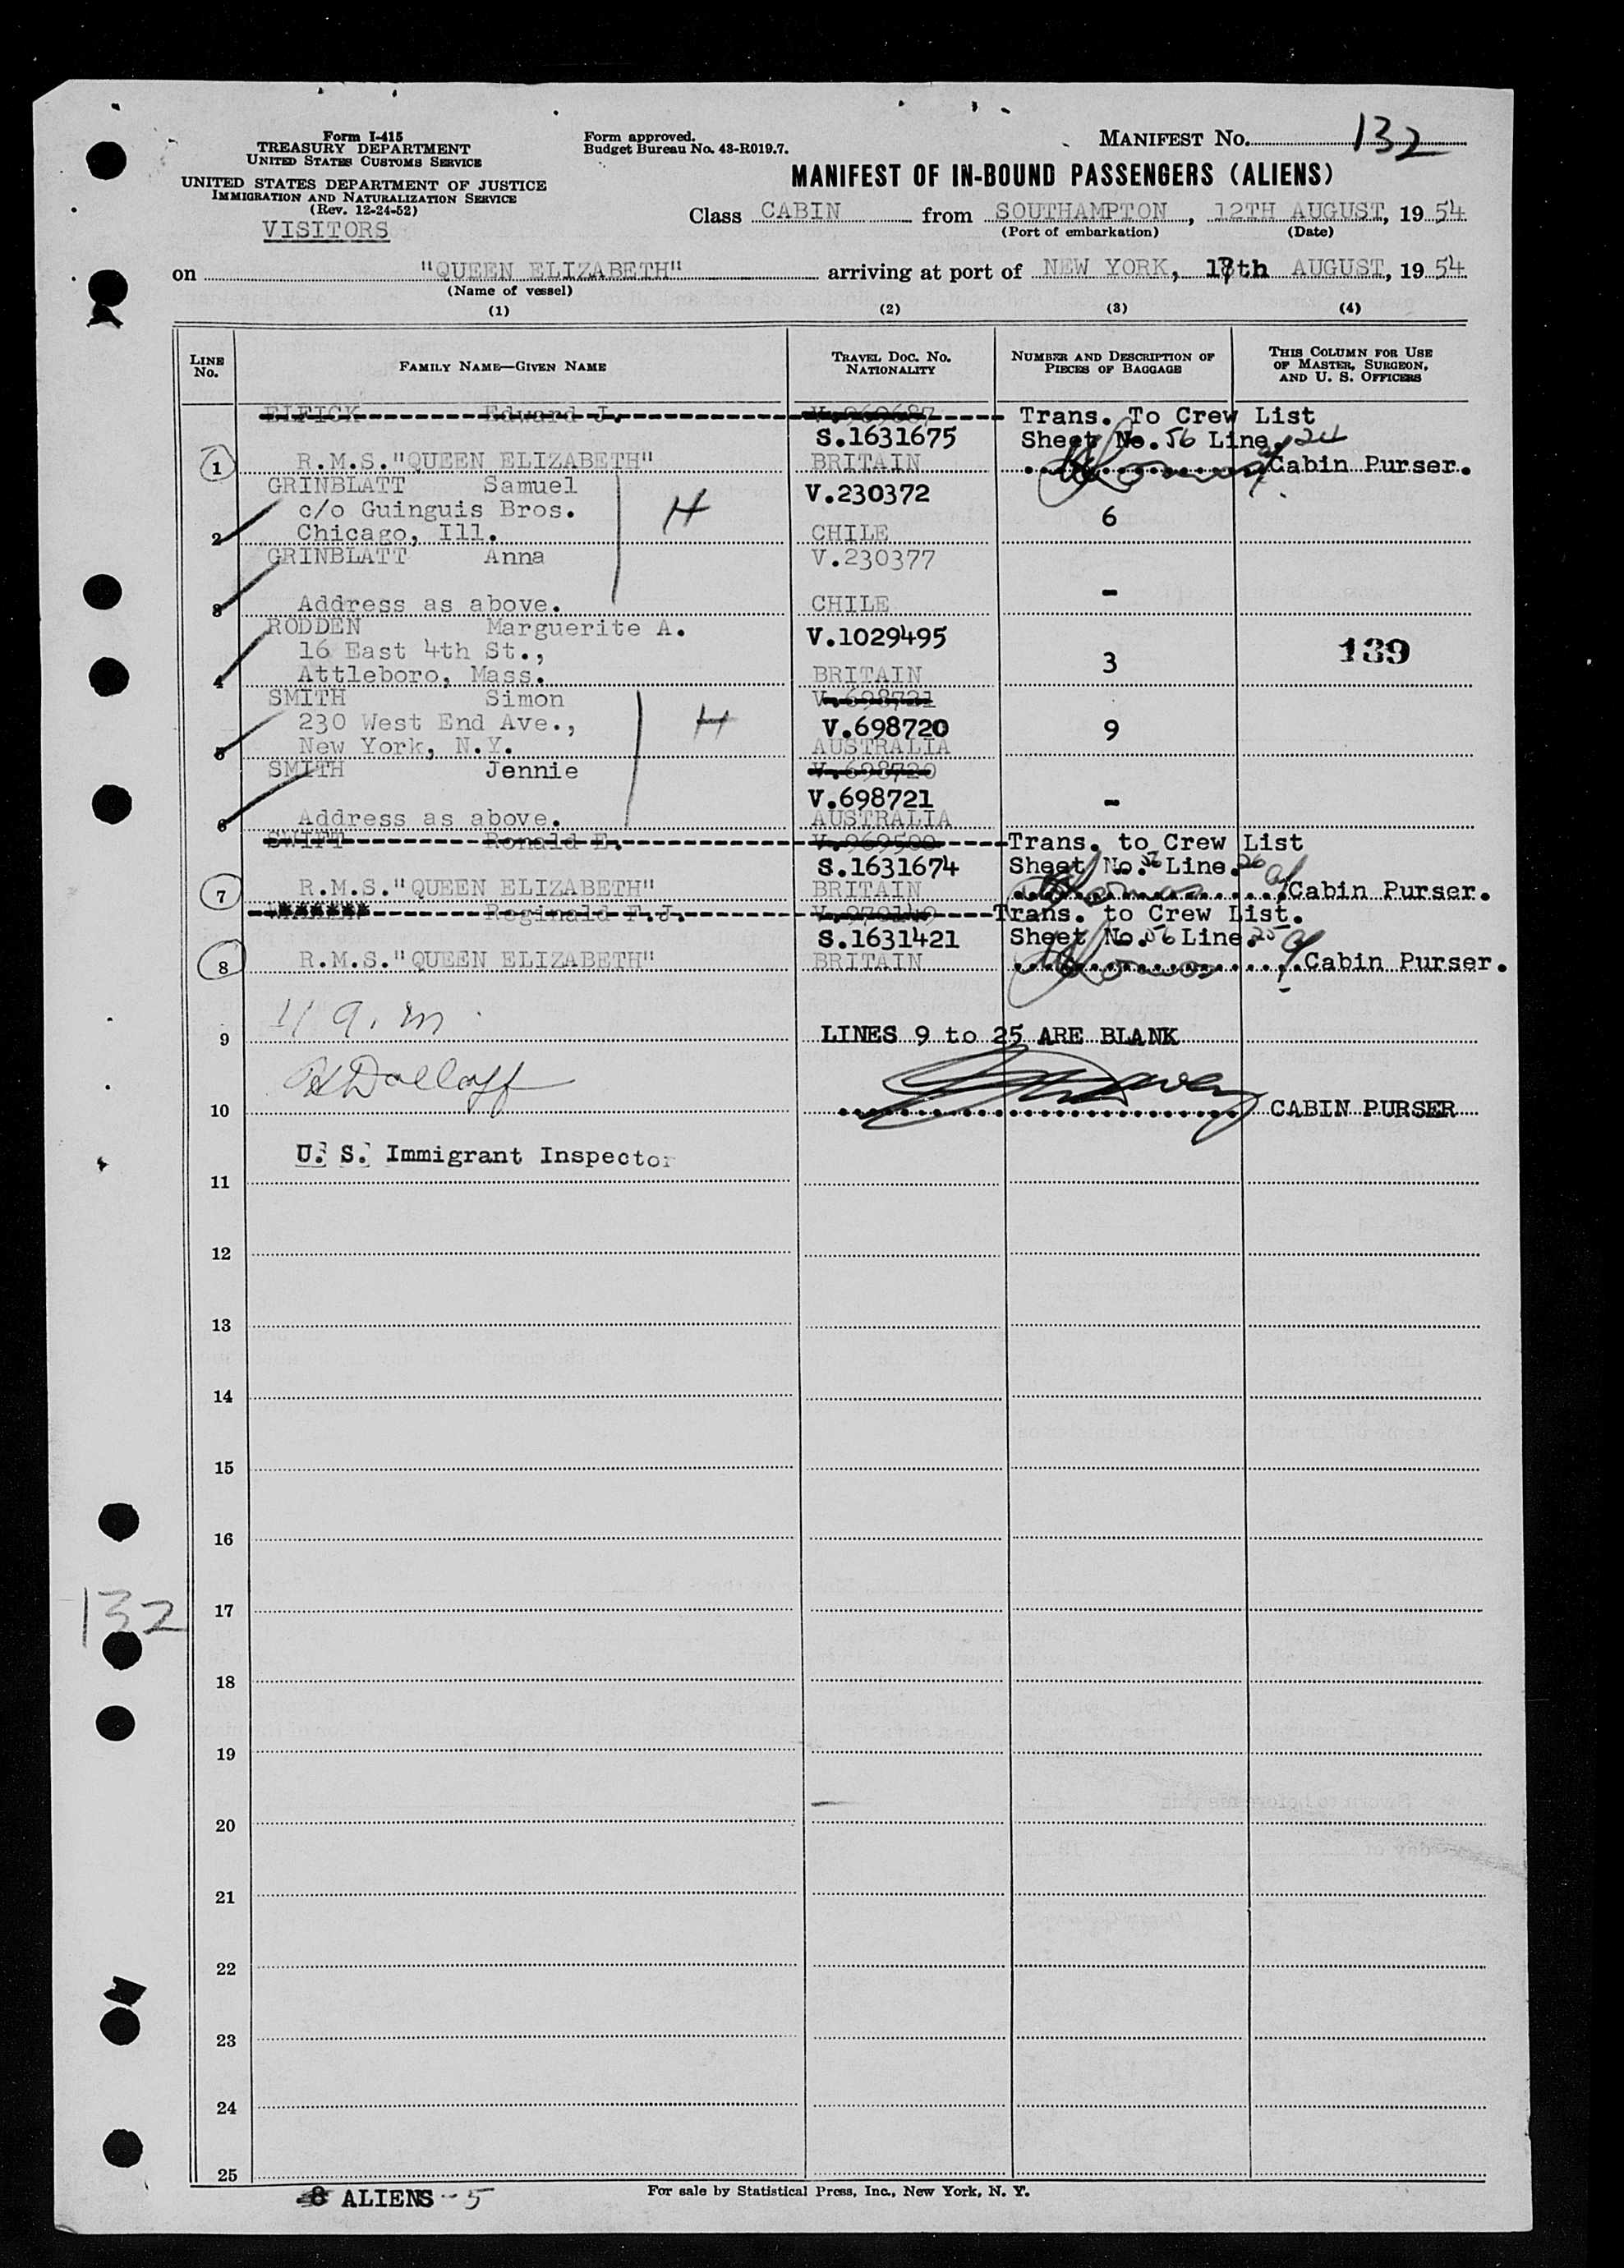 Form I-415
TREASURY DEPARTMENT
UNITED STATES CUSTOMS SERVICE
UNITED STATES DEPARTMENT OF JUSTICE
IMMIGRATION AND NATURALIZATION SERVICE
(Rev. 12-24-52)
VISITORS
Form approved.
Budget Bureau No. 43-R019.7.
MANIFEST No. 132
MANIFEST OF IN-BOUND PASSENGERS (ALIENS)
Class CABIN from SOUTHAMPTON, 12TH AUGUST, 1954
(Port of embarkation) (Date)
on "QUEEN ELIZABETH" arriving at port of NEW YORK, 17th AUGUST, 1954
(Name of vessel)
(1) (2) (3) (4)
LINE No. FAMILY NAME—GIVEN NAME TRAVEL DOC. No. NATIONALITY NUMBER AND DESCRIPTION OF PIECES OF BAGGAGE THIS COLUMN FOR USE OF MASTER, SURGEON, AND U. S. OFFICERS
ELFICK Edward J. V.969687 Trans. To Crew List
S.1631675 Sheet No. 56 Line. 24
1 R.M.S."QUEEN ELIZABETH" BRITAIN Cabin Purser.
GRINBLATT Samuel V.230372
c/o Guinguis Bros. H 6
2 Chicago, Ill. CHILE
GRINBLATT Anna V.230377
-
3 Address as above. CHILE
RODDEN Marguerite A. V.1029495
16 East 4th St., 3 139
4 Attleboro, Mass. BRITAIN
SMITH Simon V.698721
230 West End Ave., H V.698720 9
5 New York, N.Y. AUSTRALIA
SMITH Jennie V.698720
V.698721 -
6 Address as above. AUSTRALIA
SWIFT Ronald E. V.969500 Trans. to Crew List
S.1631674 Sheet No. 56 Line. 26
7 R.M.S."QUEEN ELIZABETH" BRITAIN Cabin Purser.
Reginald F.J. V.970140 Trans. to Crew List.
S.1631421 Sheet No. 56 Line. 25
8 R.M.S."QUEEN ELIZABETH" BRITAIN Cabin Purser.
9 LINES 9 to 25 ARE BLANK
10 CABIN PURSER
U. S. Immigrant Inspector
11
12
13
14
15
16
132
17
18
19
20
21
22
23
24
25
8 ALIENS - 5
For sale by Statistical Press, Inc., New York, N. Y.